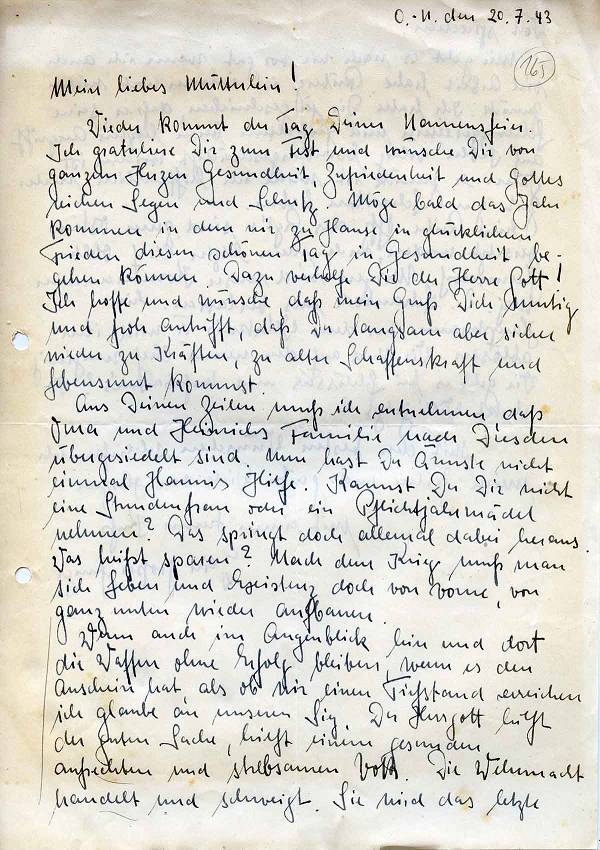 O.-U. den 20.7.43
165
Mein liebes Mütterlein!
Wieder kommt der Tag Deiner Namensfeier.
Ich gratuliere Dir zum Fest und wünsche Dir von
ganzem Herzen Gesundheit, Zufriedenheit und Gottes
reichen Segen und Schutz. Möge bald das Jahr
kommen in dem wir zu Hause in glücklichem
Frieden diesen schönen Tag in Gesundheit be-
gehen können. Dazu verhelfe Dir der Herre Gott!
Ich hoffe und wünsche daß mein Gruß Dich munter
und froh antrifft, daß Du langsam aber sicher
wieder zu Kräften, zu alter Schaffenskraft und
Lebensmut kommst.
Aus Deinen Zeilen muß ich entnehmen daß
Oma und Heinrichs Familie nach Dresden
übergesiedelt sind. Nun hast Du Ärmste nicht
einmal Hannis Hilfe. Kannst Du Dir nicht
eine Stundenfrau oder ein Pflichtjahrmädel
nehmen? Das springt doch allemal dabei heraus.
Was heißt sparen? Nach dem Krieg muß man
sich Leben und Existenz doch von vorne, von
ganz unten wieder aufbauen.
Wenn auch im Augenblick hin und dort
die Waffen ohne Erfolg bleiben, wenn es den
Anschein hat, als ob wir einen Tiefstand erreichen
ich glaube an unseren Sieg. Der Herrgott hilft
der guten Sache, hilft einem gesunden
aufrechten und strebsamen Volk. Die Wehrmacht
handelt und schweigt. Sie wird das letzte